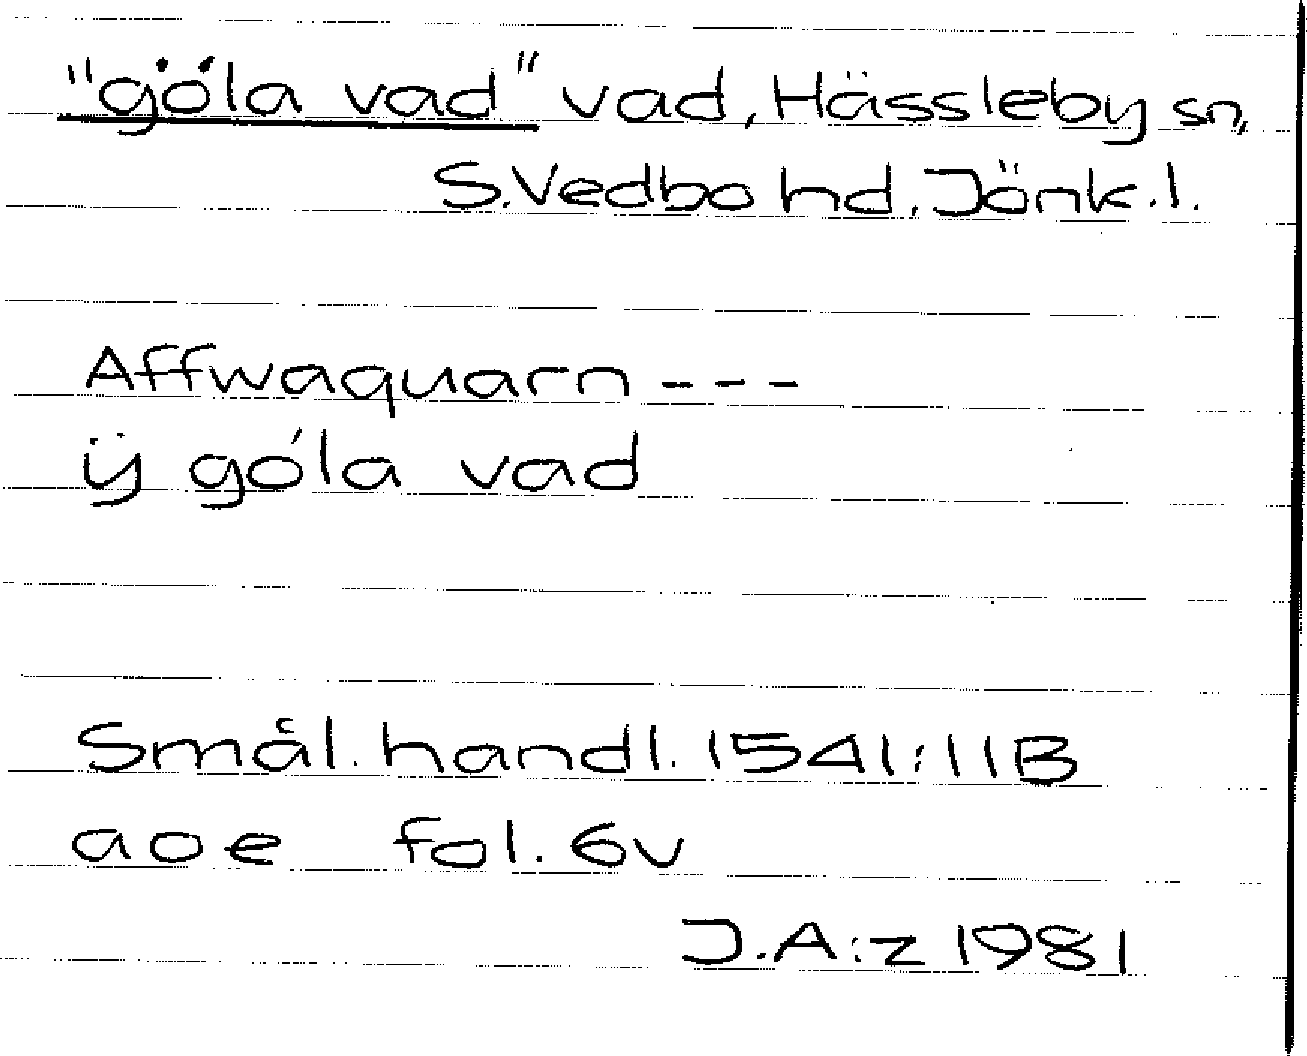 "góla vad" vad, Hässleby sn,
S.Vedbo hd, Jönk.l.
Affwaquarn ---
ÿ góla vad
Smål. handl. 1541:11B
aoe fol. 6v
J.A:z 1981